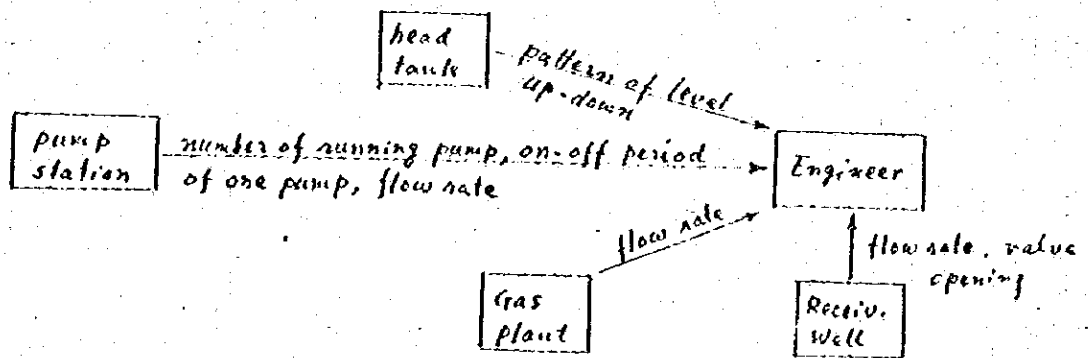 head
tank
pattern of level
up-down
pump
station
number of running pump, on-off period
of one pump, flow rate
Engineer
flow rate
flow rate, value
opening
Gas
plant
Receiv.
Well